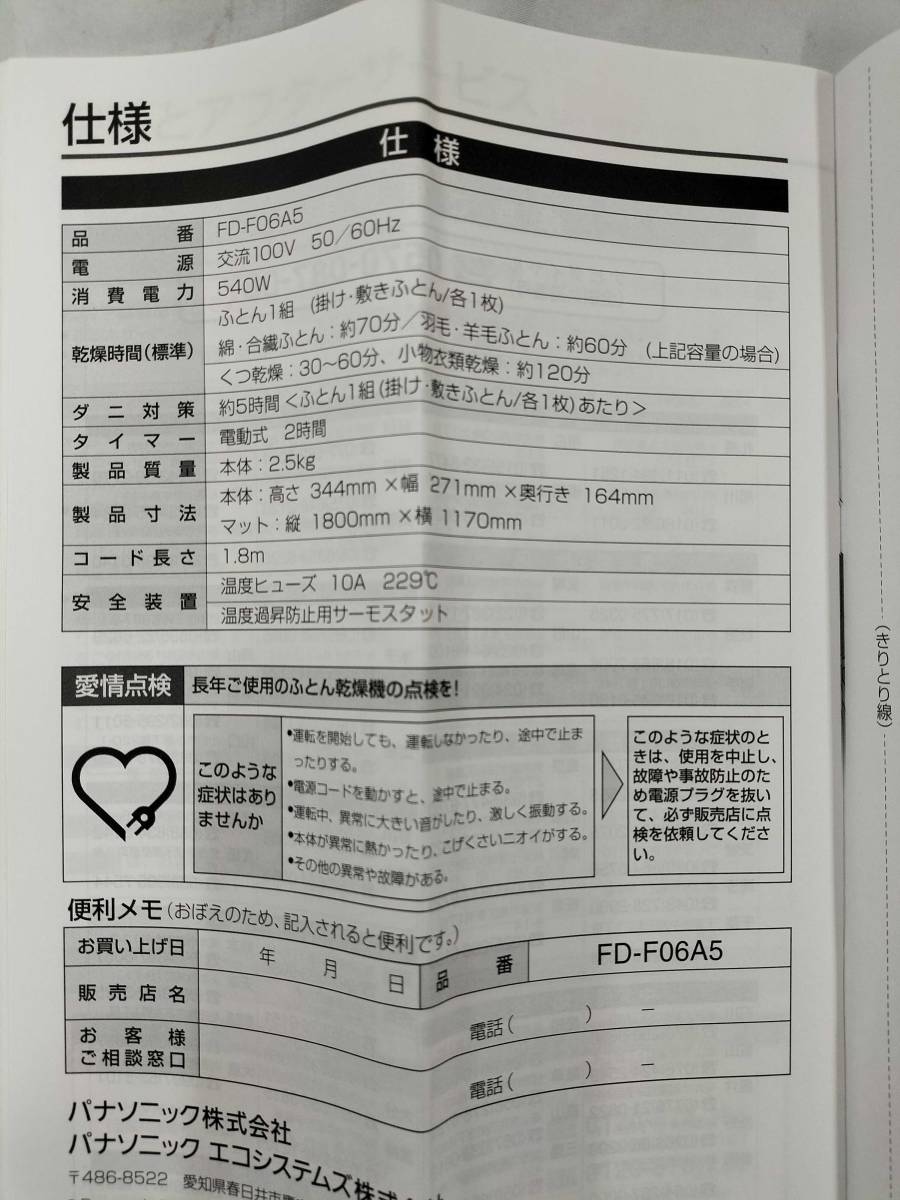 仕様
仕様
品番 FD-F06A5
電源 交流100V 50／60Hz
消費電力 540W
乾燥時間(標準) ふとん1組 (掛け・敷きふとん/各1枚)
綿・合繊ふとん：約70分／羽毛・羊毛ふとん：約60分 (上記容量の場合)
くつ乾燥：30〜60分、小物衣類乾燥：約120分
ダニ対策 約5時間＜ふとん1組(掛け・敷きふとん/各1枚)あたり＞
タイマー 電動式 2時間
製品質量 本体：2.5kg
製品寸法 本体：高さ 344mm×幅 271mm×奥行き 164mm
マット：縦 1800mm×横 1170mm
コード長さ 1.8m
安全装置 温度ヒューズ 10A 229℃
温度過昇防止用サーモスタット
愛情点検 長年ご使用のふとん乾燥機の点検を！
このような
症状はあり
ませんか
●運転を開始しても、運転しなかったり、途中で止ま
ったりする。
●電源コードを動かすと、途中で止まる。
●運転中、異常に大きい音がしたり、激しく振動する。
●本体が異常に熱かったり、こげくさいニオイがする。
●その他の異常や故障がある。
このような症状のと
きは、使用を中止し、
故障や事故防止のた
め電源プラグを抜い
て、必ず販売店に点
検を依頼してくださ
い。
便利メモ(おぼえのため、記入されると便利です。)
お買い上げ日 年 月 日 品番 FD-F06A5
販売店名 電話( ) −
お客様
ご相談窓口 電話( ) −
パナソニック株式会社
パナソニック エコシステムズ株式会
〒486-8522 愛知県春日井市
(きりとり線)